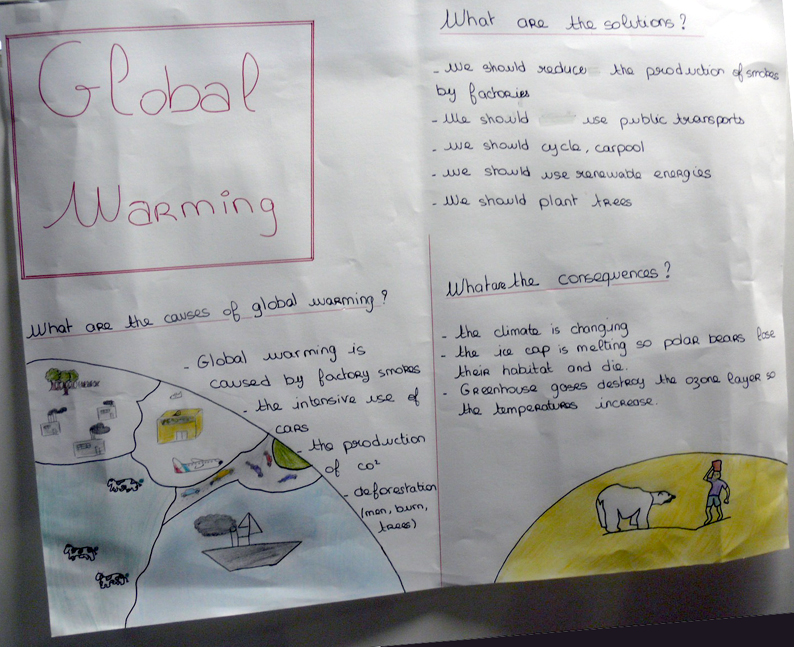 Global
Warming
What are the causes of global warming?
- Global warming is
caused by factory smokes
- the intensive use of
cars
- the production
of CO²
- deforestation
(men, burn,
trees)
What are the solutions?
- We should reduce the production of smokes
by factories
- We should use public transports
- we should cycle, carpool
- we should use renewable energies
- We should plant trees
What are the consequences?
- the climate is changing
- the ice cap is melting so polar bears lose
their habitat and die.
- Greenhouse gases destroy the ozone layer so
the temperatures increase.